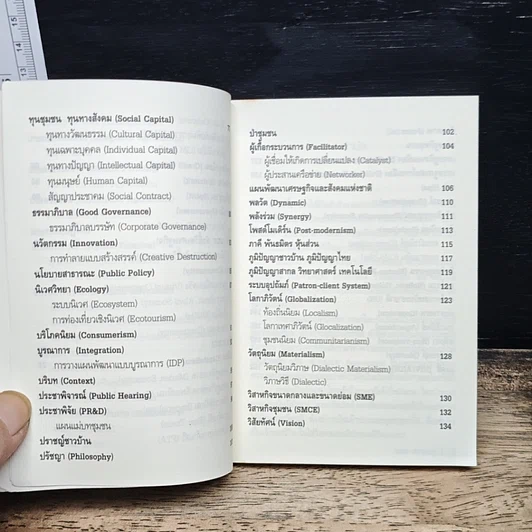 ทุนชุมชน ทุนทางสังคม (Social Capital)
ทุนทางวัฒนธรรม (Cultural Capital)
ทุนเฉพาะบุคคล (Individual Capital)
ทุนทางปัญญา (Intellectual Capital)
ทุนมนุษย์ (Human Capital)
สัญญาประชาคม (Social Contract)
ธรรมาภิบาล (Good Governance)
ธรรมาภิบาลบรรษัท (Corporate Governance)
นวัตกรรม (Innovation)
การทำลายแบบสร้างสรรค์ (Creative Destruction)
นโยบายสาธารณะ (Public Policy)
นิเวศวิทยา (Ecology)
ระบบนิเวศ (Ecosystem)
การท่องเที่ยวเชิงนิเวศ (Ecotourism)
บริโภคนิยม (Consumerism)
บูรณาการ (Integration)
การวางแผนพัฒนาแบบบูรณาการ (IDP)
บริบท (Context)
ประชาพิจารณ์ (Public Hearing)
ประชาพิจัย (PR&D)
แผนแม่บทชุมชน
ปราชญ์ชาวบ้าน
ปรัชญา (Philosophy)
ป่าชุมชน 102
ผู้เอื้อกระบวนการ (Facilitator) 104
ผู้เชื่อมให้เกิดการเปลี่ยนแปลง (Catalyst)
ผู้ประสานเครือข่าย (Networker)
แผนพัฒนาเศรษฐกิจและสังคมแห่งชาติ 106
พลวัต (Dynamic) 110
พลังร่วม (Synergy) 111
โพสต์โมเดิร์น (Post-modernism) 113
ภาคี พันธมิตร หุ้นส่วน 115
ภูมิปัญญาชาวบ้าน ภูมิปัญญาไทย 117
ภูมิปัญญาสากล วิทยาศาสตร์ เทคโนโลยี 119
ระบบอุปถัมภ์ (Patron-client System) 121
โลกาภิวัตน์ (Globalization) 123
ท้องถิ่นนิยม (Localism)
โลกาเทศาภิวัตน์ (Glocalization)
ชุมชนนิยม (Communitarianism)
วัตถุนิยม (Materialism) 128
วัตถุนิยมวิภาษ (Dialectic Materialism)
วิภาษวิธี (Dialectic)
วิสาหกิจขนาดกลางและขนาดย่อม (SME) 130
วิสาหกิจชุมชน (SMCE) 132
วิสัยทัศน์ (Vision) 134